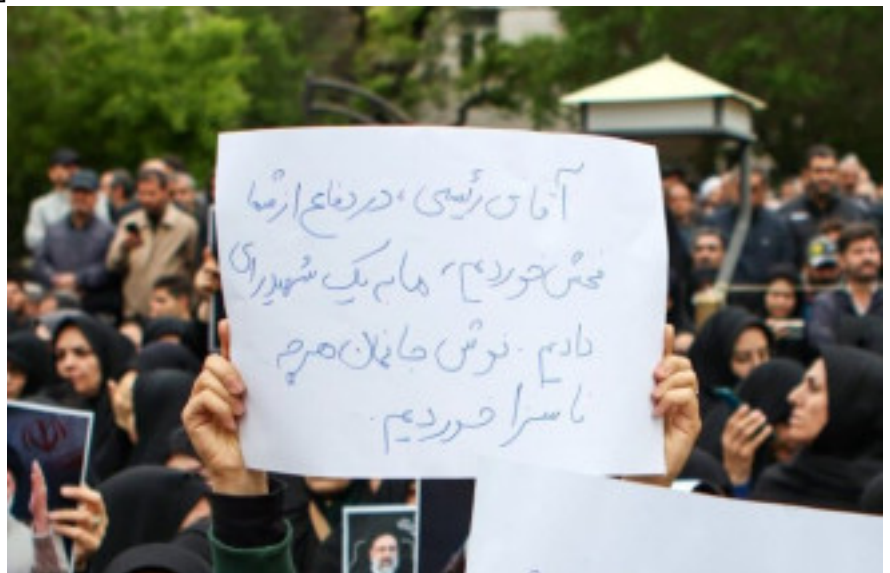 آقای رئیسی، در دفاع از شما
فحش خوردیم، ما به یک شهید رای
دادیم. نوش جانمان هرچه
ناسزا خوردیم.